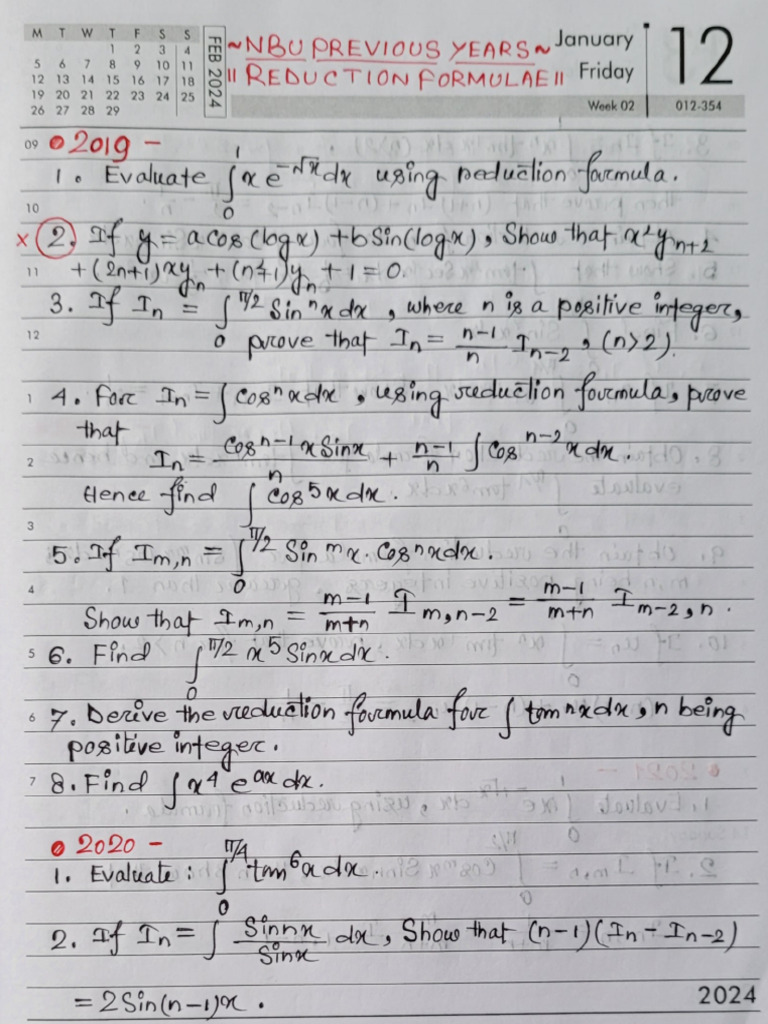 M T W T F S S
1 2 3 4
5 6 7 8 9 10 11
12 13 14 15 16 17 18
19 20 21 22 23 24 25
26 27 28 29
FEB 2024
~NBU PREVIOUS YEARS~
|| REDUCTION FORMULAE ||
January
Friday
12
Week 02
012-354
09 • 2019 -
1. Evaluate ∫₀¹ x e^{-√x} dx using reduction formula.
10
x 2. If y = a cos (log x) + b Sin(log x), Show that x²y_{n+2}
11 + (2n+1)xy_n + (n²+1)y_n + 1 = 0.
3. If I_n = ∫₀^{π/2} Sinⁿx dx, where n is a positive integer,
12 prove that I_n = \frac{n-1}{n} I_{n-2}, (n>2).
1 4. For I_n = ∫ Cosⁿx dx, using reduction formula, prove
that
2 I_n = \frac{Cos^{n-1}x Sinx}{n} + \frac{n-1}{n} ∫ Cos^{n-2}x dx.
Hence find ∫ Cos⁵x dx.
3
5. If I_{m,n} = ∫₀^{π/2} Sin^m x. Cosⁿx dx
4
Show that I_{m,n} = \frac{m-1}{m+n} I_{m,n-2} = \frac{m-1}{m+n} I_{m-2,n}.
5 6. Find ∫₀^{π/2} x⁵ Sinx dx.
6 7. Derive the reduction formula for ∫ tanⁿx dx, n being
positive integer.
7 8. Find ∫ x⁴ e^{ax} dx.
• 2020 -
1. Evaluate: ∫₀^{π/4} tan⁶x dx.
2. If I_n = ∫ \frac{Sin nx}{Sinx} dx, Show that (n-1)(I_n - I_{n-2})
= 2Sin(n-1)x.
2024